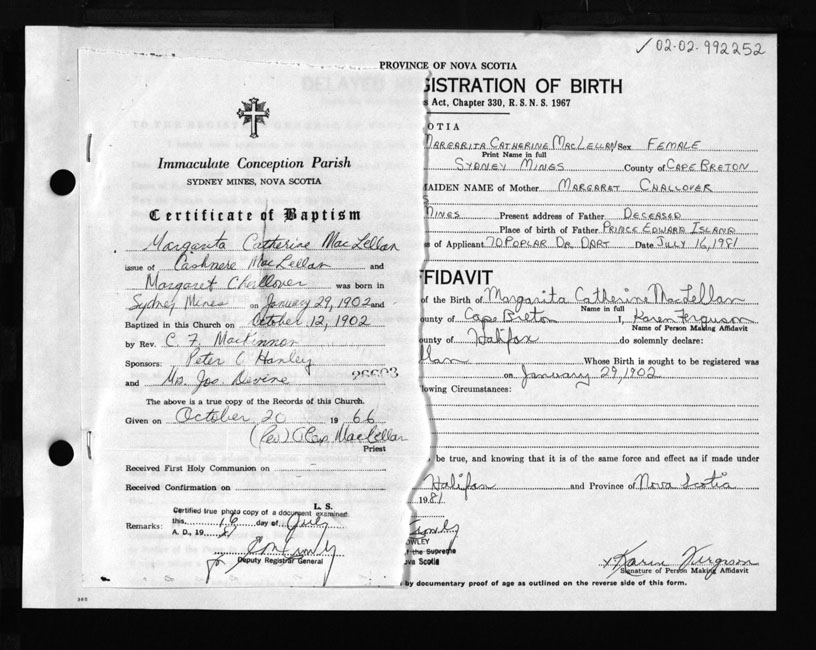 ✓02-02-992252
PROVINCE OF NOVA SCOTIA
GISTRATION OF BIRTH
s Act, Chapter 330, R. S. N. S. 1967
OTIA
MARGARITA CATHERINE MACLELLAN Sex FEMALE
Print Name in full
SYDNEY MINES County of CAPE BRETON
MAIDEN NAME of Mother MARGARAT CHALLOVER
MINES Present address of Father DECEASED
Place of birth of Father PRINCE EDWARD ISLAND
s of Applicant 70 POPLAR DR. DART Date JULY 16, 1981
FFIDAVIT
of the Birth of Margarita Catherine MacLellan
Name in full
ounty of Cape Breton I, Karen Ferguson
Name of Person Making Affidavit
ounty of Halifax do solemnly declare:
llan Whose Birth is sought to be registered was
on January 29, 1902
lowing Circumstances:
be true, and knowing that it is of the same force and effect as if made under
Halifax and Province of Nova Scotia
1981
OWLEY
f the Supreme
ova Scotia
x Karen Ferguson
Signature of Person Making Affidavit
by documentary proof of age as outlined on the reverse side of this form.
Immaculate Conception Parish
SYDNEY MINES, NOVA SCOTIA
Certificate of Baptism
Margarita Catherine MacLellan
issue of Cashmere MacLellan and
Margaret Challover was born in
Sydney Mines on January 29, 1902 and
Baptized in this Church on October 12, 1902
by Rev. C. F. MacKinnon
Sponsors: Peter O'Hanley
and Mrs. Jos. Devine 26603
The above is a true copy of the Records of this Church.
Given on October 20 1966
(Rev) MacLellan
Priest
Received First Holy Communion on
Received Confirmation on
L. S.
Certified true photo copy of a document examined
Remarks: this 16 day of July
A. D., 19 81
for Deputy Registrar General
385